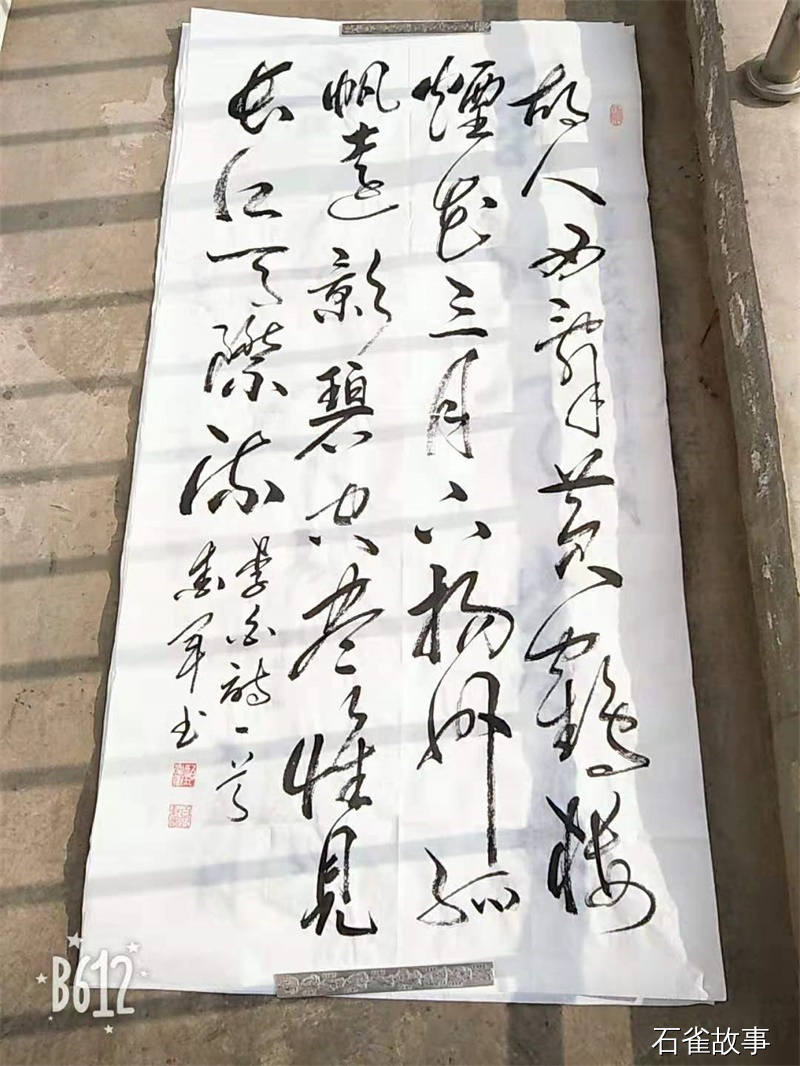 故人西辞黄鹤楼
煙花三月下扬州孤
帆远影碧空尽惟見
长江天際流
李白诗一首
志军书
B612
石雀故事